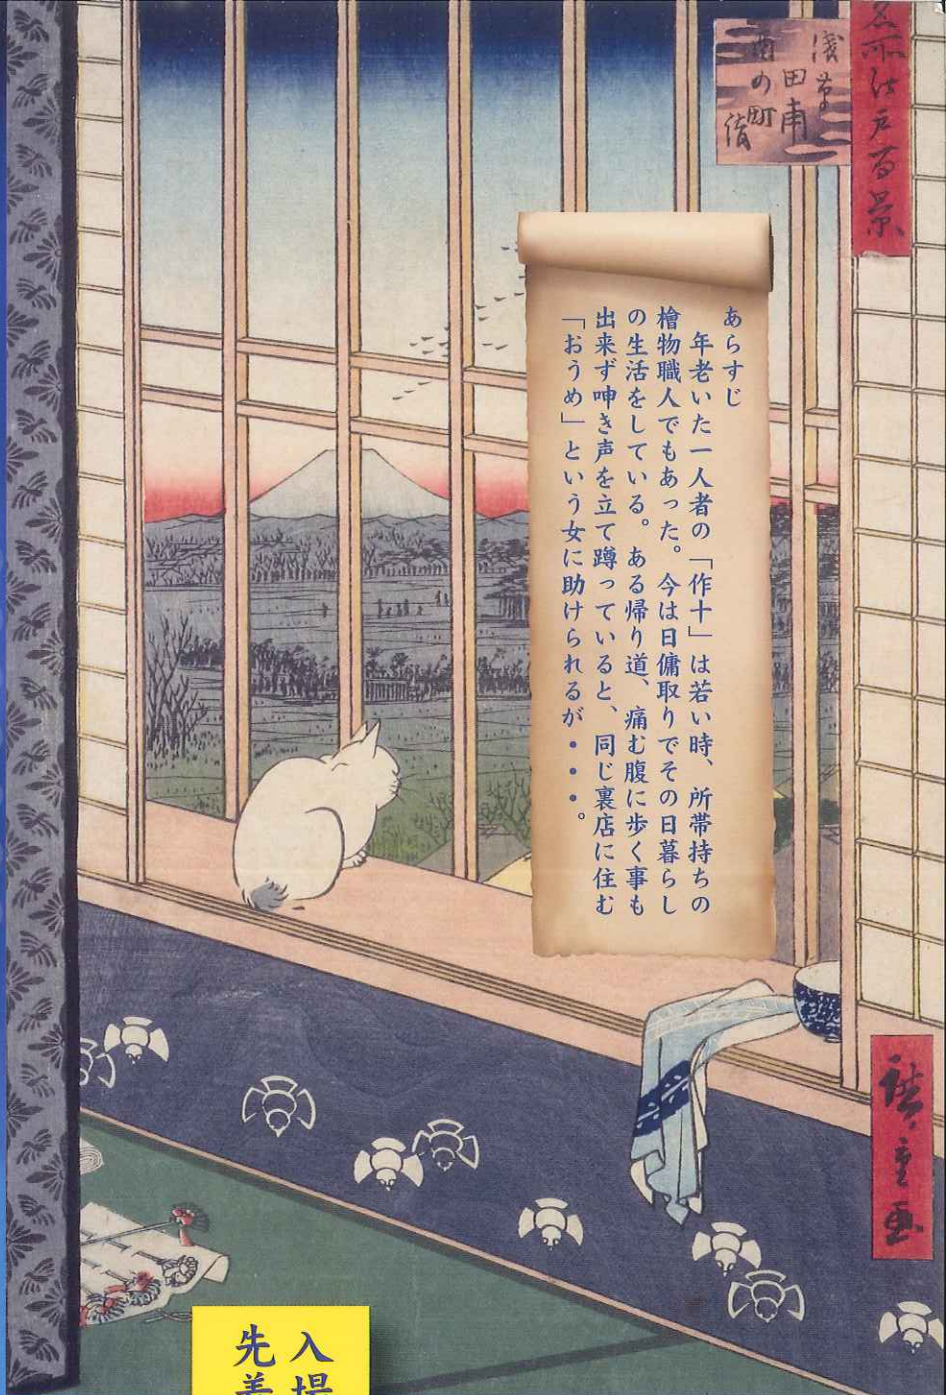 名所江戸百景
浅草
田甫
酉の町
詣
あらすじ
年老いた一人者の「作十」は若い時、所帯持ちの
檜物職人でもあった。今は日傭取りでその日暮らし
の生活をしている。ある帰り道、痛む腹に歩く事も
出来ず呻き声を立て蹲っていると、同じ裏店に住む
「おうめ」という女に助けられるが・・・。
廣重画
入場
先着